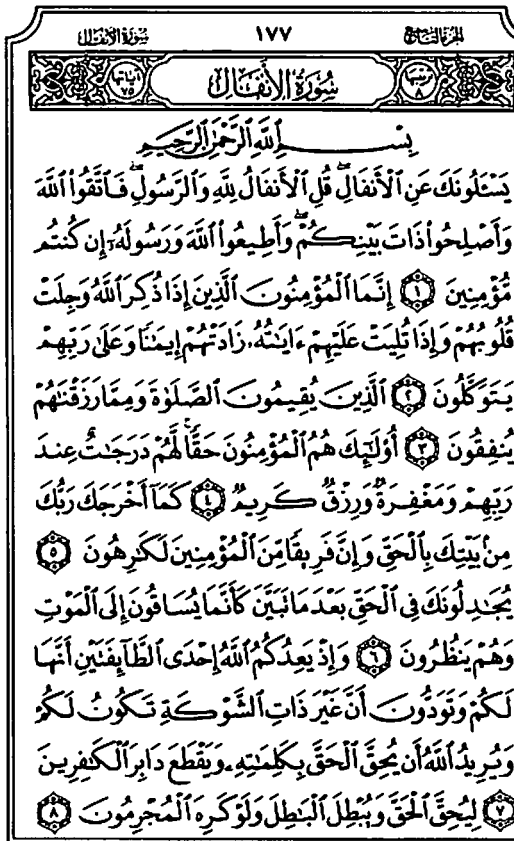 سُورَةُ الأَنفَال ١٧٧ الجُزءُ التَّاسِعُ
ترتيبها ٨ سُورَةُ الأَنفَالِ آياتها ٧٥
بِسْمِ ٱللَّهِ ٱلرَّحْمَٰنِ ٱلرَّحِيمِ
يَسْـَٔلُونَكَ عَنِ ٱلْأَنفَالِۖ قُلِ ٱلْأَنفَالُ لِلَّهِ وَٱلرَّسُولِۖ فَٱتَّقُوا۟ ٱللَّهَ
وَأَصْلِحُوا۟ ذَاتَ بَيْنِكُمْۖ وَأَطِيعُوا۟ ٱللَّهَ وَرَسُولَهُۥٓ إِن كُنتُم
مُّؤْمِنِينَ ١ إِنَّمَا ٱلْمُؤْمِنُونَ ٱلَّذِينَ إِذَا ذُكِرَ ٱللَّهُ وَجِلَتْ
قُلُوبُهُمْ وَإِذَا تُلِيَتْ عَلَيْهِمْ ءَايَٰتُهُۥ زَادَتْهُمْ إِيمَٰنًا وَعَلَىٰ رَبِّهِمْ
يَتَوَكَّلُونَ ٢ ٱلَّذِينَ يُقِيمُونَ ٱلصَّلَوٰةَ وَمِمَّا رَزَقْنَٰهُمْ
يُنفِقُونَ ٣ أُو۟لَٰٓئِكَ هُمُ ٱلْمُؤْمِنُونَ حَقًّاۚ لَّهُمْ دَرَجَٰتٌ عِندَ
رَبِّهِمْ وَمَغْفِرَةٌ وَرِزْقٌ كَرِيمٌ ٤ كَمَآ أَخْرَجَكَ رَبُّكَ
مِنۢ بَيْتِكَ بِٱلْحَقِّ وَإِنَّ فَرِيقًا مِّنَ ٱلْمُؤْمِنِينَ لَكَٰرِهُونَ ٥
يُجَٰدِلُونَكَ فِى ٱلْحَقِّ بَعْدَ مَا تَبَيَّنَ كَأَنَّمَا يُسَاقُونَ إِلَى ٱلْمَوْتِ
وَهُمْ يَنظُرُونَ ٦ وَإِذْ يَعِدُكُمُ ٱللَّهُ إِحْدَى ٱلطَّآئِفَتَيْنِ أَنَّهَا
لَكُمْ وَتَوَدُّونَ أَنَّ غَيْرَ ذَاتِ ٱلشَّوْكَةِ تَكُونُ لَكُمْ
وَيُرِيدُ ٱللَّهُ أَن يُحِقَّ ٱلْحَقَّ بِكَلِمَٰتِهِۦ وَيَقْطَعَ دَابِرَ ٱلْكَٰفِرِينَ
٧ لِيُحِقَّ ٱلْحَقَّ وَيُبْطِلَ ٱلْبَٰطِلَ وَلَوْ كَرِهَ ٱلْمُجْرِمُونَ ٨